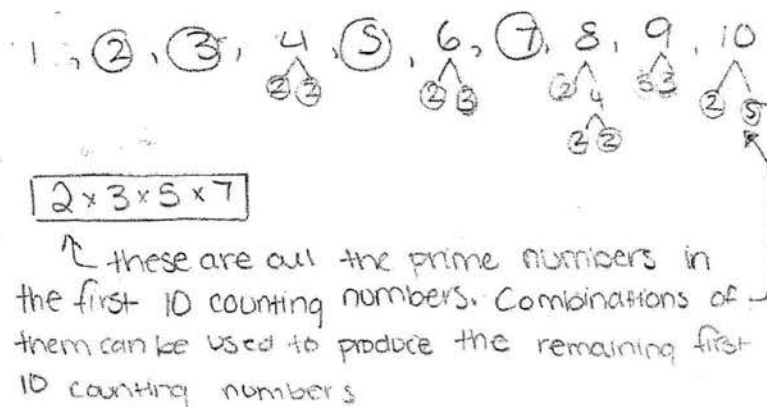 1, 2, 3, 4, 5, 6, 7, 8, 9, 10
2 2 2 3 2 4 3 3 2 5
2 2
2 x 3 x 5 x 7
these are all the prime numbers in
the first 10 counting numbers. Combinations of
them can be used to produce the remaining first
10 counting numbers